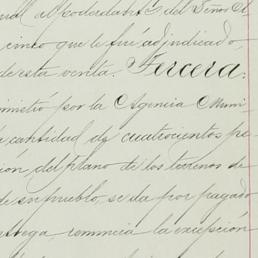 al apoderado del Señor
cinco que le fué adjudicado,
de esta venta. Tercera.
ministró por la Agencia Muni
cantidad de cuatrocientos pe
ción del plano de los terrenos de
de su pueblo, se da por pagado
entrega, renuncia la excepción